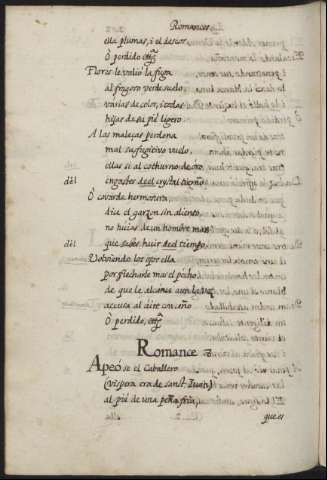 Romances
ella plumas, i el deseo.
Ò perdido etc.ª
Flores le valió la fuga
al fingero verde suelo,
várias de color, i todas
hijas de su pié ligero.
A las malezas perdona
mal su fugitivo vuelo,
ellas sí al cothurno de oro
dèl engastes deel crystal tierno.
Ò covarde hermosura,
diu el garzon sin aliento,
no huias de un hombre mas
dèl que sabes huir deel tiempo.
Volviendo los ojos ella
por flecharle mas el pecho
de que le alcanze aun la voz
acusa al aire con ceño
Ò perdido, etc.ª
Romance
Apeóse el Caballero
(víspera era de sanct Juan)
al pié de una peña fria,
que es